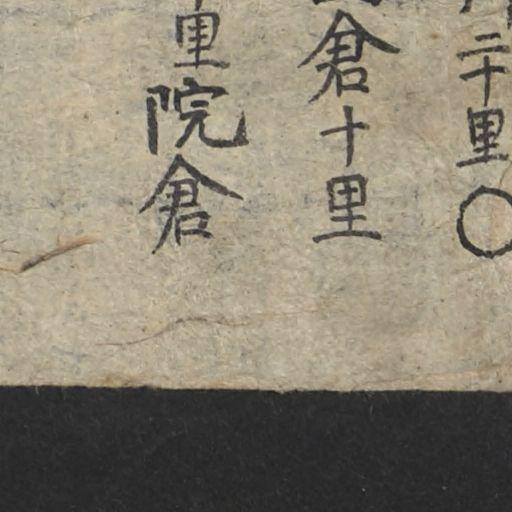 二十里〇
倉十里
里院倉